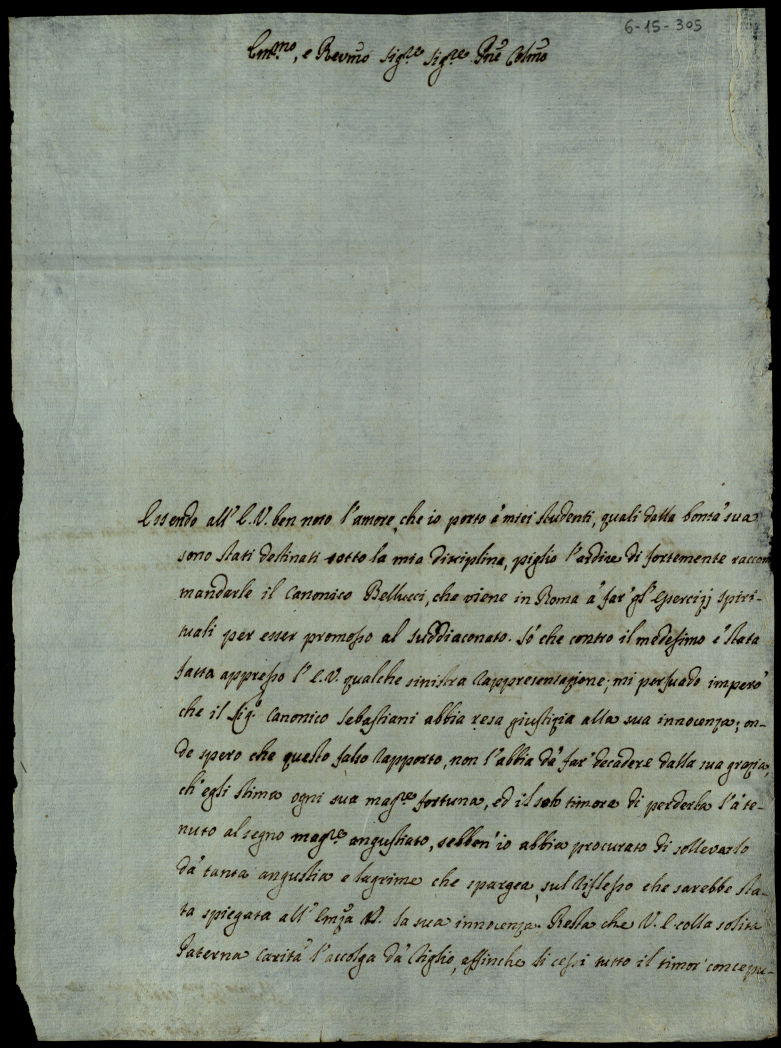 6-15-305
Em.mo, e Revmo Sig.re Sig.re Pnē Colmo
Essendo all' E.V. ben noto l'amore, che io porto á miei studenti, quali dalla bontá sua
sono stati destinati sotto la mia disciplina, piglio l'ardire di fortemente raccom
mandarle il Canonico Bellucci, che viene in Roma á far' gl' Esercizj spiri-
tuali per esser promosso al suddiaconato. Só che contro il medesimo é stata
fatta appresso l' E.V. qualche sinistra rappresentazione; mi persuado imperó
che il Sig.r Canonico Sebastiani abbia resa giustizia alla sua innocenza; on-
de spero che questo falso rapporto, non l'abbia dá far' decadere dalla sua grazia,
ch'egli stima ogni sua mag.re fortuna, ed il solo timore di perderla l'á te-
nuto al segno mag.re angustiato, sebben' io abbia procurato di sollevarlo
dá tanta angustia e lagrime che spargea, sul riflesso che sarebbe sta-
ta spiegata all' Em̄za V. la sua innocenza. Resta che V.E. colla solita
Paterna Caritá l'accolga dá figlio, affinche si cessi tutto il timor' concepu-